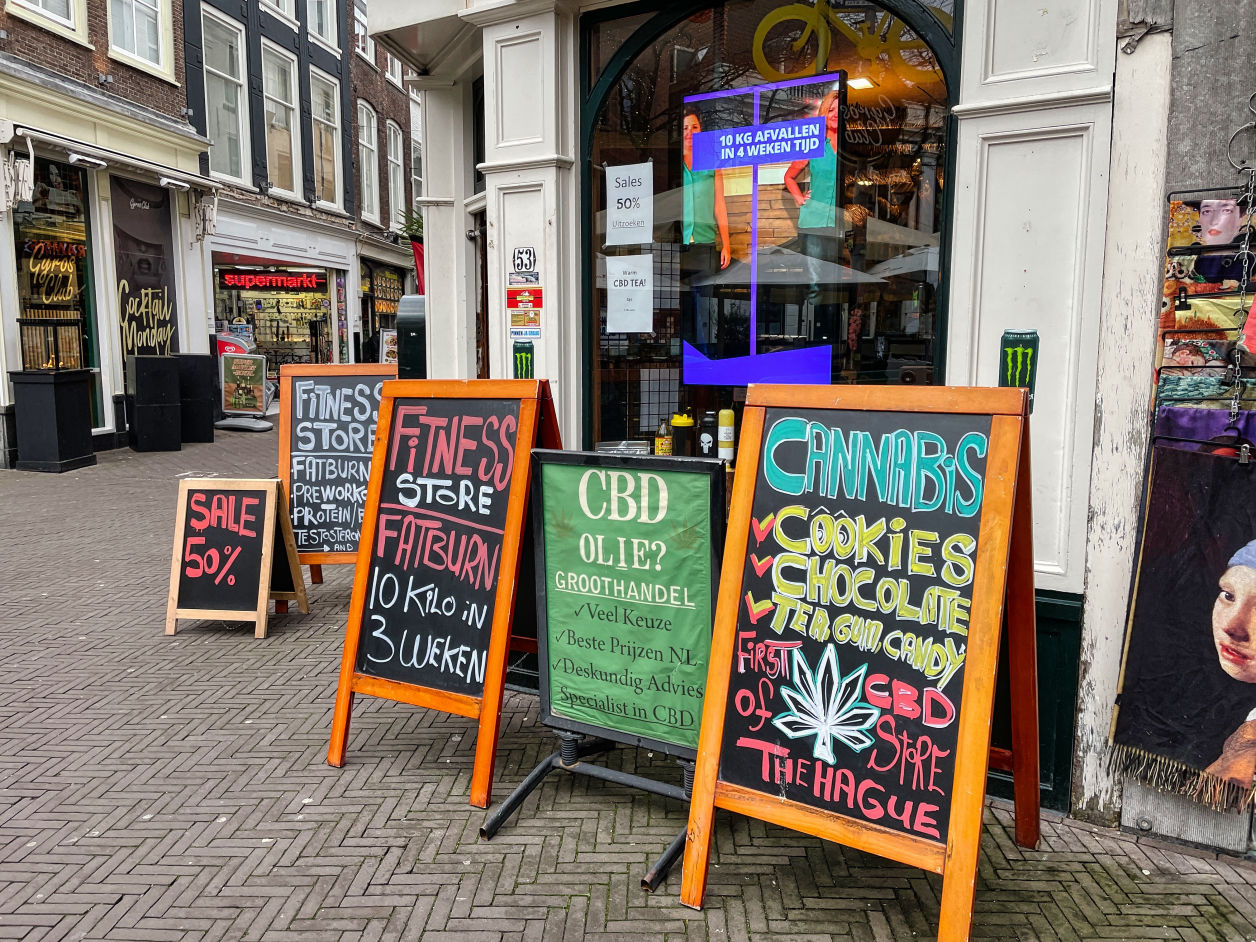 Gyros
Club
Gyros Club
Cocktail
Monday
supermarkt
10 KG AFVALLEN
IN 4 WEKEN TIJD
Sales
50%
Uitzoeken
Warm
CBD TEA!
53
SALE
50%
FiTNESS
STORE
FATBURN
PREWORKO
PROTEIN/
TESTOSTERON
AND
FiTNESS
STORE
FATBURN
10 KiLO iN
3 WEKEN
CBD
OLIE?
GROOTHANDEL
✓Veel Keuze
✓Beste Prijzen NL
✓Deskundig Advies
Specialist in CBD
CANNABiS
✓COOKiES
✓CHOCOLATE
✓TEA, GUM, CANDY
FiRST CBD
of STORE
THE HAGUE